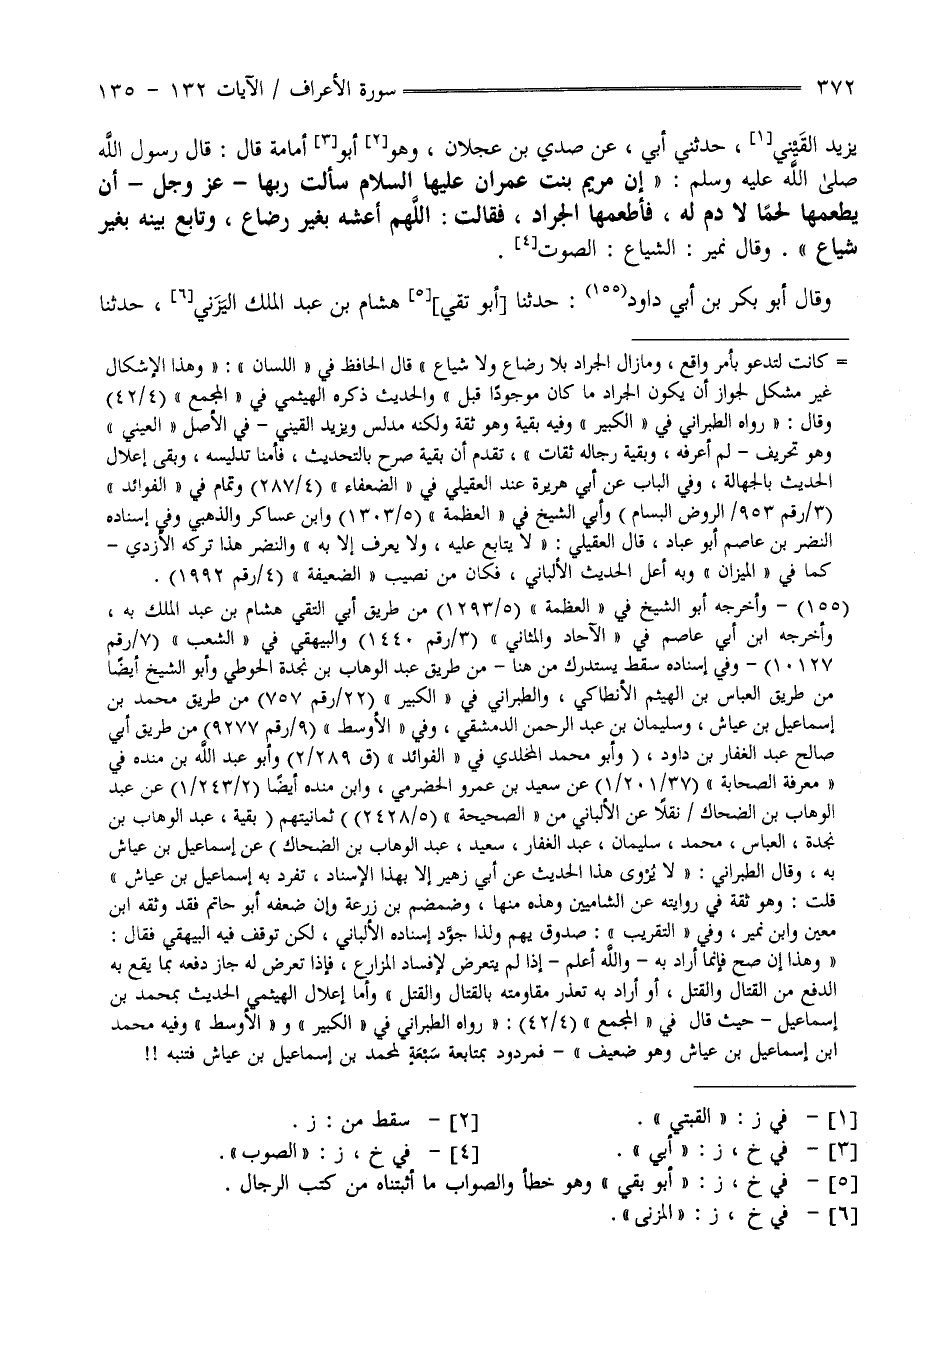 ٣٧٢ سورة الأعراف / الآيات ١٣٢ - ١٣٥
يزيد القَيْني[١] ، حدثني أبي ، عن صدي بن عجلان ، وهو[٢] أبو[٣] أمامة قال : قال رسول اللَّه
صلى اللَّه عليه وسلم : « إن مريم بنت عمران عليها السلام سألت ربها – عز وجل – أن
يطعمها لحمًا لا دم له ، فأطعمها الجراد ، فقالت : اللَّهم أعشه بغير رضاع ، وتابع بينه بغير
شياع » . وقال نمير : الشياع : الصوت[٤] .
وقال أبو بكر بن أبي داود(١٥٥) : حدثنا [أبو تقي][٥] هشام بن عبد الملك اليَزَني[٦] ، حدثنا
= كانت لتدعو بأمر واقع ، ومازال الجراد بلا رضاع ولا شياع » قال الحافظ في « اللسان » : « وهذا الإشكال
غير مشكل لجواز أن يكون الجراد ما كان موجودًا قبل » والحديث ذكره الهيثمي في « المجمع » (٤٢/٤)
وقال : « رواه الطبراني في « الكبير » وفيه بقية وهو ثقة ولكنه مدلس ويزيد القيني – في الأصل « العيني »
وهو تحريف – لم أعرفه ، وبقية رجاله ثقات » ، تقدم أن بقية صرح بالتحديث ، فأمنا تدليسه ، وبقى إعلال
الحديث بالجهالة ، وفي الباب عن أبي هريرة عند العقيلي في « الضعفاء » (٢٨٧/٤) وتمام في « الفوائد »
(٣/رقم ٩٥٣/ الروض البسام ) وأبي الشيخ في « العظمة » (١٣٠٣/٥) وابن عساكر والذهبي وفي إسناده
النضر بن عاصم أبو عباد ، قال العقيلي : « لا يتابع عليه ، ولا يعرف إلا به » والنضر هذا تركه الأزدي –
كما في « الميزان » وبه أعل الحديث الألباني ، فكان من نصيب « الضعيفة » (٤/رقم ١٩٩٢) .
(١٥٥) – وأخرجه أبو الشيخ في « العظمة » (١٢٩٣/٥) من طريق أبي التقي هشام بن عبد الملك به ،
وأخرجه ابن أبي عاصم في « الآحاد والمثاني » (٣/رقم ١٤٤٠) والبيهقي في « الشعب » (٧/رقم
١٠١٢٧) – وفي إسناده سقط يستدرك من هنا – من طريق عبد الوهاب بن نجدة الحوطي وأبو الشيخ أيضًا
من طريق العباس بن الهيثم الأنطاكي ، والطبراني في « الكبير » (٢٢/رقم ٧٥٧) من طريق محمد بن
إسماعيل بن عياش ، وسليمان بن عبد الرحمن الدمشقي ، وفي « الأوسط » (٩/رقم ٩٢٧٧) من طريق أبي
صالح عبد الغفار بن داود ، ( وأبو محمد المخلدي في « الفوائد » (ق ٢/٢٨٩) وأبو عبد اللَّه بن منده في
« معرفة الصحابة » (١/٢٠١/٣٧) عن سعيد بن عمرو الحضرمي ، وابن منده أيضًا (١/٢٤٣/٢) عن عبد
الوهاب بن الضحاك / نقلًا عن الألباني من « الصحيحة » (٢٤٢٨/٥) ) ثمانيتهم ( بقية ، عبد الوهاب بن
نجدة ، العباس ، محمد ، سليمان ، عبد الغفار ، سعيد ، عبد الوهاب بن الضحاك ) عن إسماعيل بن عياش
به ، وقال الطبراني : « لا يُرْوى هذا الحديث عن أبي زهير إلا بهذا الإسناد ، تفرد به إسماعيل بن عياش »
قلت : وهو ثقة في روايته عن الشاميين وهذه منها ، وضمضم بن زرعة وإن ضعفه أبو حاتم فقد وثقه ابن
معين وابن نمير ، وفي « التقريب » : صدوق يهم ولذا جوَّد إسناده الألباني ، لكن توقف فيه البيهقي فقال :
« وهذا إن صح فإنما أراد به – واللَّه أعلم – إذا لم يتعرض لإفساد المزارع ، فإذا تعرض له جاز دفعه بما يقع به
الدفع من القتال والقتل ، أو أراد به تعذر مقاومته بالقتال والقتل » وأما إعلال الهيثمي الحديث بمحمد بن
إسماعيل – حيث قال في « المجمع » (٤٢/٤) : « رواه الطبراني في « الكبير » و « الأوسط » وفيه محمد
ابن إسماعيل بن عياش وهو ضعيف » – فمردود بمتابعة سَبْعَةٍ لمحمد بن إسماعيل بن عياش فتنبه !!
[١] – في ز : « القبتي » . [٢] – سقط من : ز .
[٣] – في خ ، ز : « أبي » . [٤] – في خ ، ز : « الصوب » .
[٥] – في خ ، ز : « أبو بقي » وهو خطأ والصواب ما أثبتناه من كتب الرجال .
[٦] – في خ ، ز : « المزنى » .